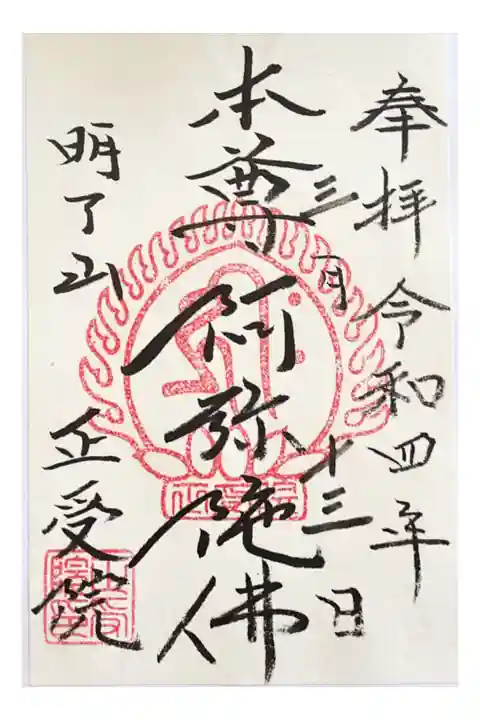 奉拝 令和四年
三月十三日
本尊 阿弥陀佛
明了山 正受院